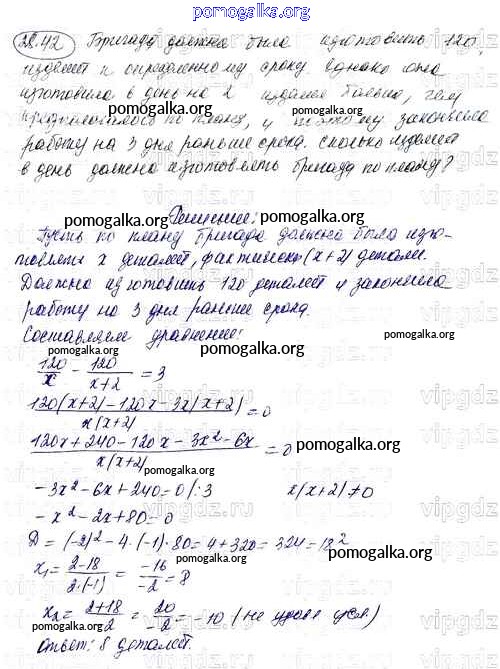 pomogalka.org
28.42 Бригада должна была изготовить 120
изделий к определенному сроку. Однако она
изготовила в день на 2 изделия больше, чем
предполагалось по плану, и поэтому закончила
работу на 3 дня раньше срока. Сколько изделий
в день должна изготовлять бригада по плану?
pomogalka.org
Решение:
pomogalka.org
Пусть по плану бригада должна была изго-
товлять x деталей, фактически (x+2) детали.
pomogalka.org
Должна изготовить 120 деталей и закончила
работу на 3 дня раньше срока.
Составляем уравнение:
pomogalka.org
120/x - 120/(x+2) = 3
pomogalka.org
(120(x+2) - 120x - 3x(x+2))/(x(x+2)) = 0
(120x + 240 - 120x - 3x² - 6x)/(x(x+2)) = 0
pomogalka.org
pomogalka.org
-3x² - 6x + 240 = 0 /:3 x(x+2) ≠ 0
-x² - 2x + 80 = 0
pomogalka.org
D = (-2)² - 4·(-1)·80 = 4 + 320 = 324 = 18²
x₁ = (2-18)/(2·(-1)) = -16/-2 = 8
pomogalka.org
x₂ = (2+18)/-2 = 20/-2 = -10 (не удов. усл.)
Ответ: 8 деталей.
pomogalka.org